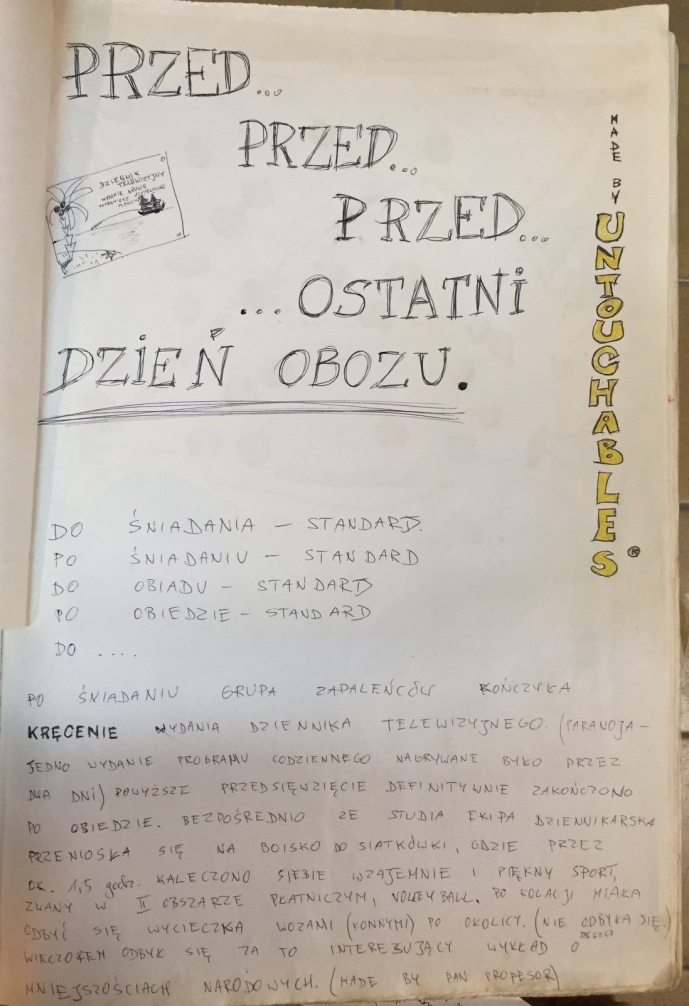 PRZED...
PRZED...
PRZED...
...OSTATNI
DZIEŃ OBOZU.
MADE BY UNTOUCHABLES ®
DZIENNIK
TELEWIZYJNY
DO ŚNIADANIA – STANDARD.
PO ŚNIADANIU – STANDARD
DO OBIADU – STANDARD
PO OBIEDZIE – STANDARD
DO ....
PO ŚNIADANIU GRUPA ZAPALEŃCÓW KOŃCZYŁA
KRĘCENIE WYDANIA DZIENNIKA TELEWIZYJNEGO. (PARANOJA –
JEDNO WYDANIE PROGRAMU CODZIENNEGO NAGRYWANE BYŁO PRZEZ
DWA DNI) POWYŻSZE PRZEDSIĘWZIĘCIE DEFINITYWNIE ZAKOŃCZONO
PO OBIEDZIE. BEZPOŚREDNIO ZE STUDIA EKIPA DZIENNIKARSKA
PRZENIOSŁA SIĘ NA BOISKO DO SIATKÓWKI, GDZIE PRZEZ
OK. 1,5 godz. KALECZONO SIEBIE WZAJEMNIE I PIĘKNY SPORT,
ZWANY W II OBSZARZE PŁATNICZYM, VOLLEYBALL. PO KOLACJI MIAŁA
ODBYĆ SIĘ WYCIECZKA WOZAMI (KONNYMI) PO OKOLICY. (NIE ODBYŁA SIĘ.)
DESZCZ
WIECZOREM ODBYŁ SIĘ ZA TO INTERESUJĄCY WYKŁAD O
MNIEJSZOŚCIACH NARODOWYCH. (MADE BY PAN PROFESOR)